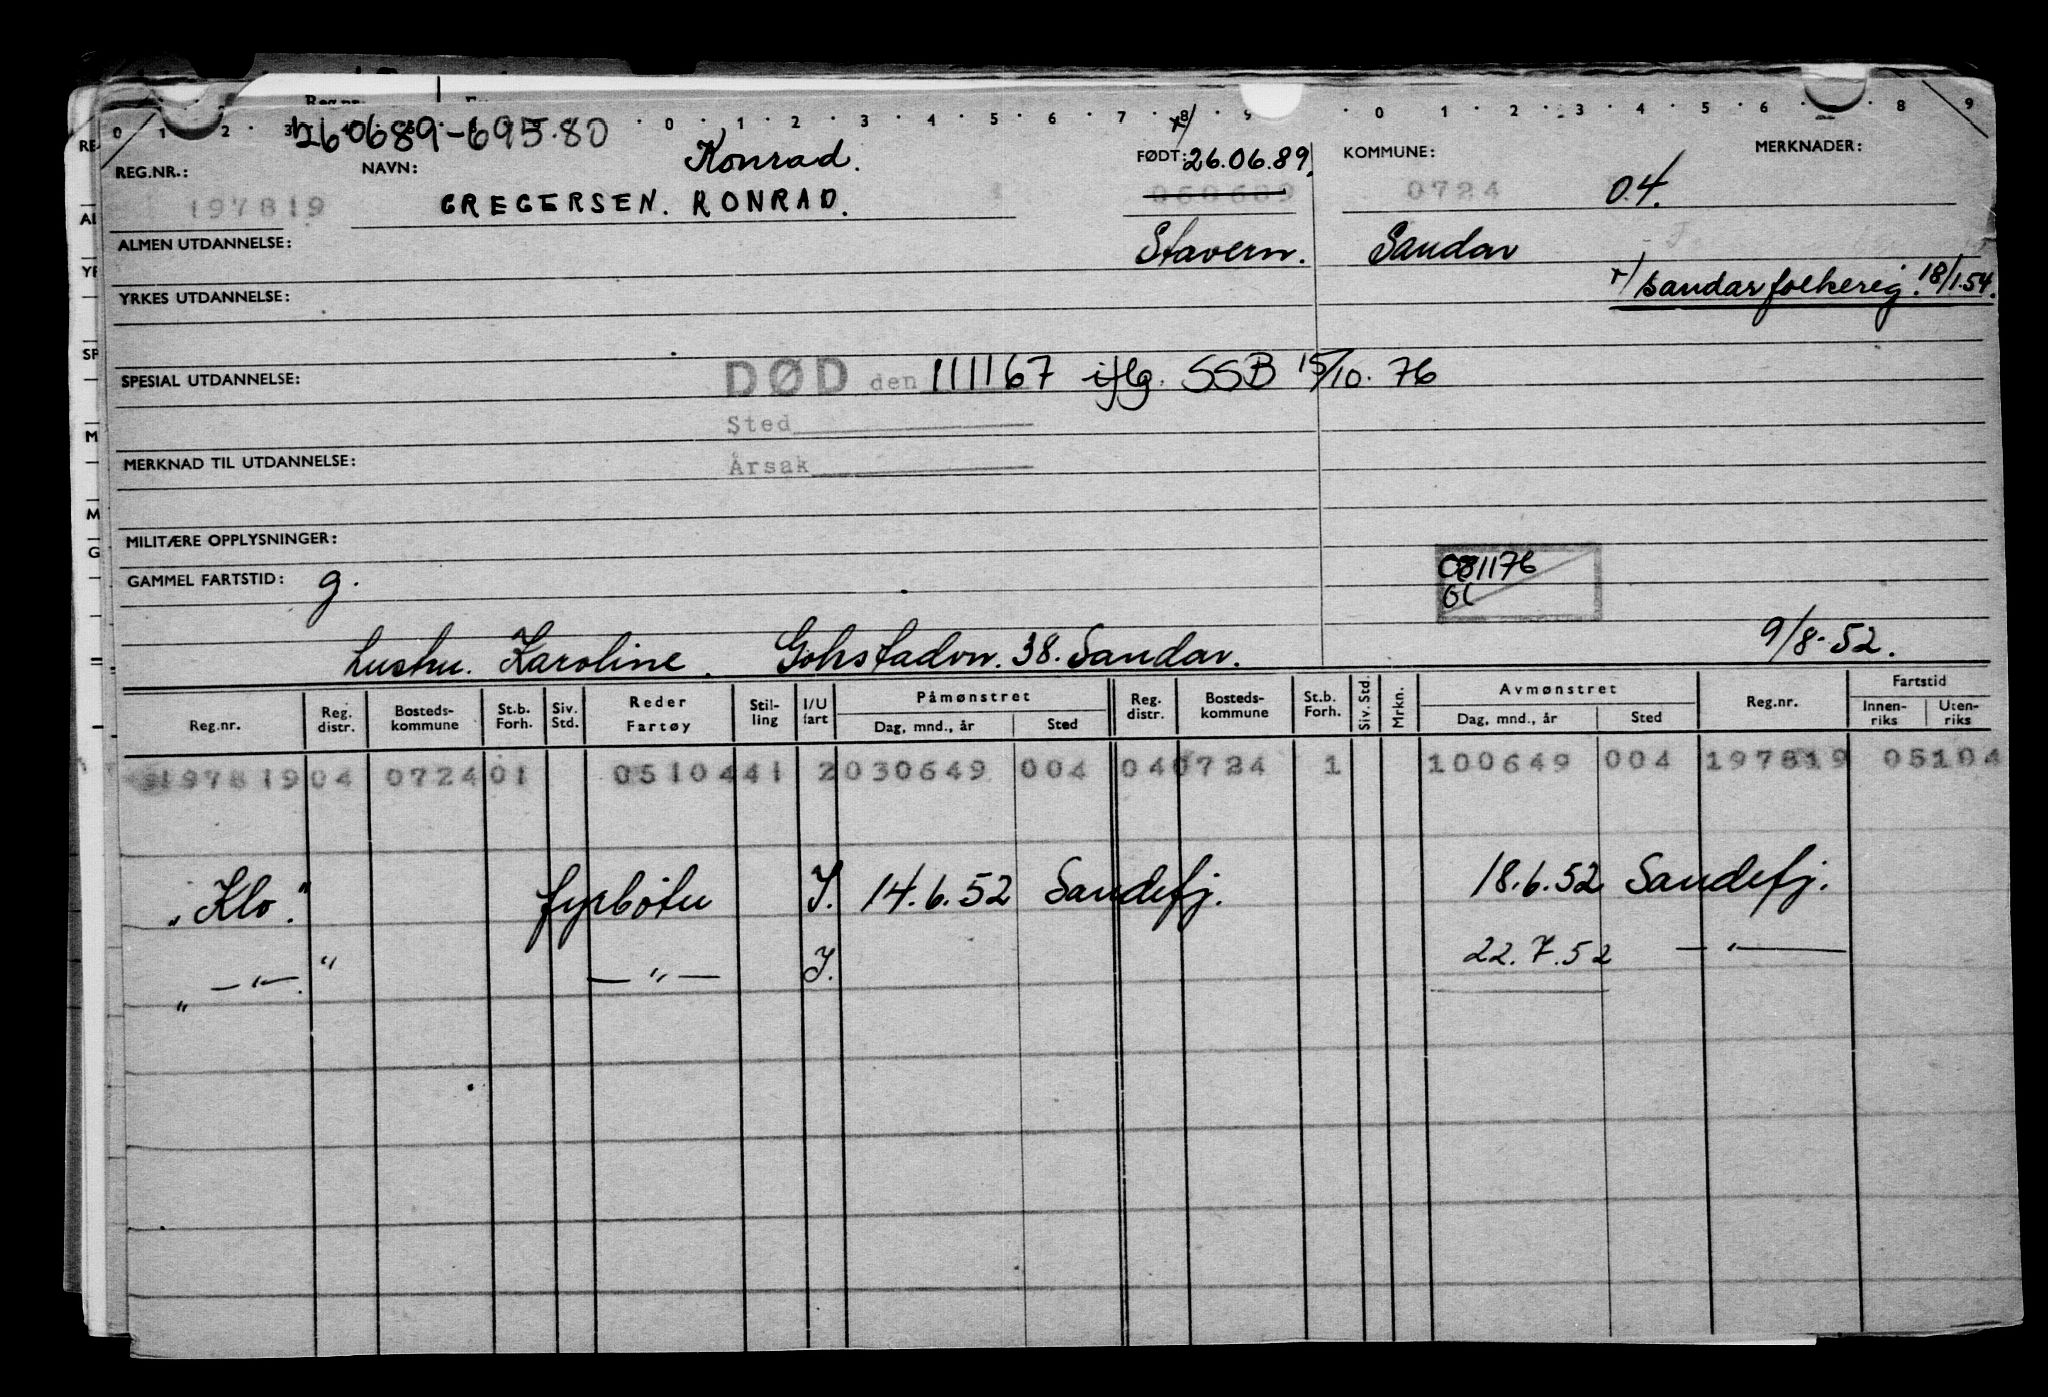 260689-695.80
0 1 2 3 0 1 2 3 4 5 6 7 8 9 0 1 2 3 4 5 6 8 9
REG.NR.: NAVN: Konrad. FØDT: 26.06.89. KOMMUNE: MERKNADER:
197819 GREGERSEN. KONRAD. 060689 0724 04.
ALMEN UTDANNELSE: Stavern. Sandar
YRKES UTDANNELSE: sandar folkereg. 18/1.54.
SPESIAL UTDANNELSE: DØD den 111167 iflg. SSB 15/10.76
Sted
MERKNAD TIL UTDANNELSE: Årsak
MILITÆRE OPPLYSNINGER:
081176
GAMMEL FARTSTID: g.
Karoline. Gokstadvn. 38. Sandar. 9/8-52.
Reg.nr. Reg. distr. Bosteds- kommune St.b. Forh. Siv. Std. Reder Fartøy Stil- ling I/U fart Påmønstret Dag, mnd., år Sted Reg. distr. Bosteds- kommune St.b. Forh. Siv. Std. Mrkn. Avmønstret Dag, mnd., år Sted Reg.nr. Fartstid Innen- riks Uten- riks
197819 04 0724 01 05104 41 2 030649 004 04 0724 1 100649 004 197819 05104
"Klo." fyrbøter I. 14.6.52 Sandefj. 18.6.52 Sandefj.
" — " — " — " — I. 22.7.52 — " —